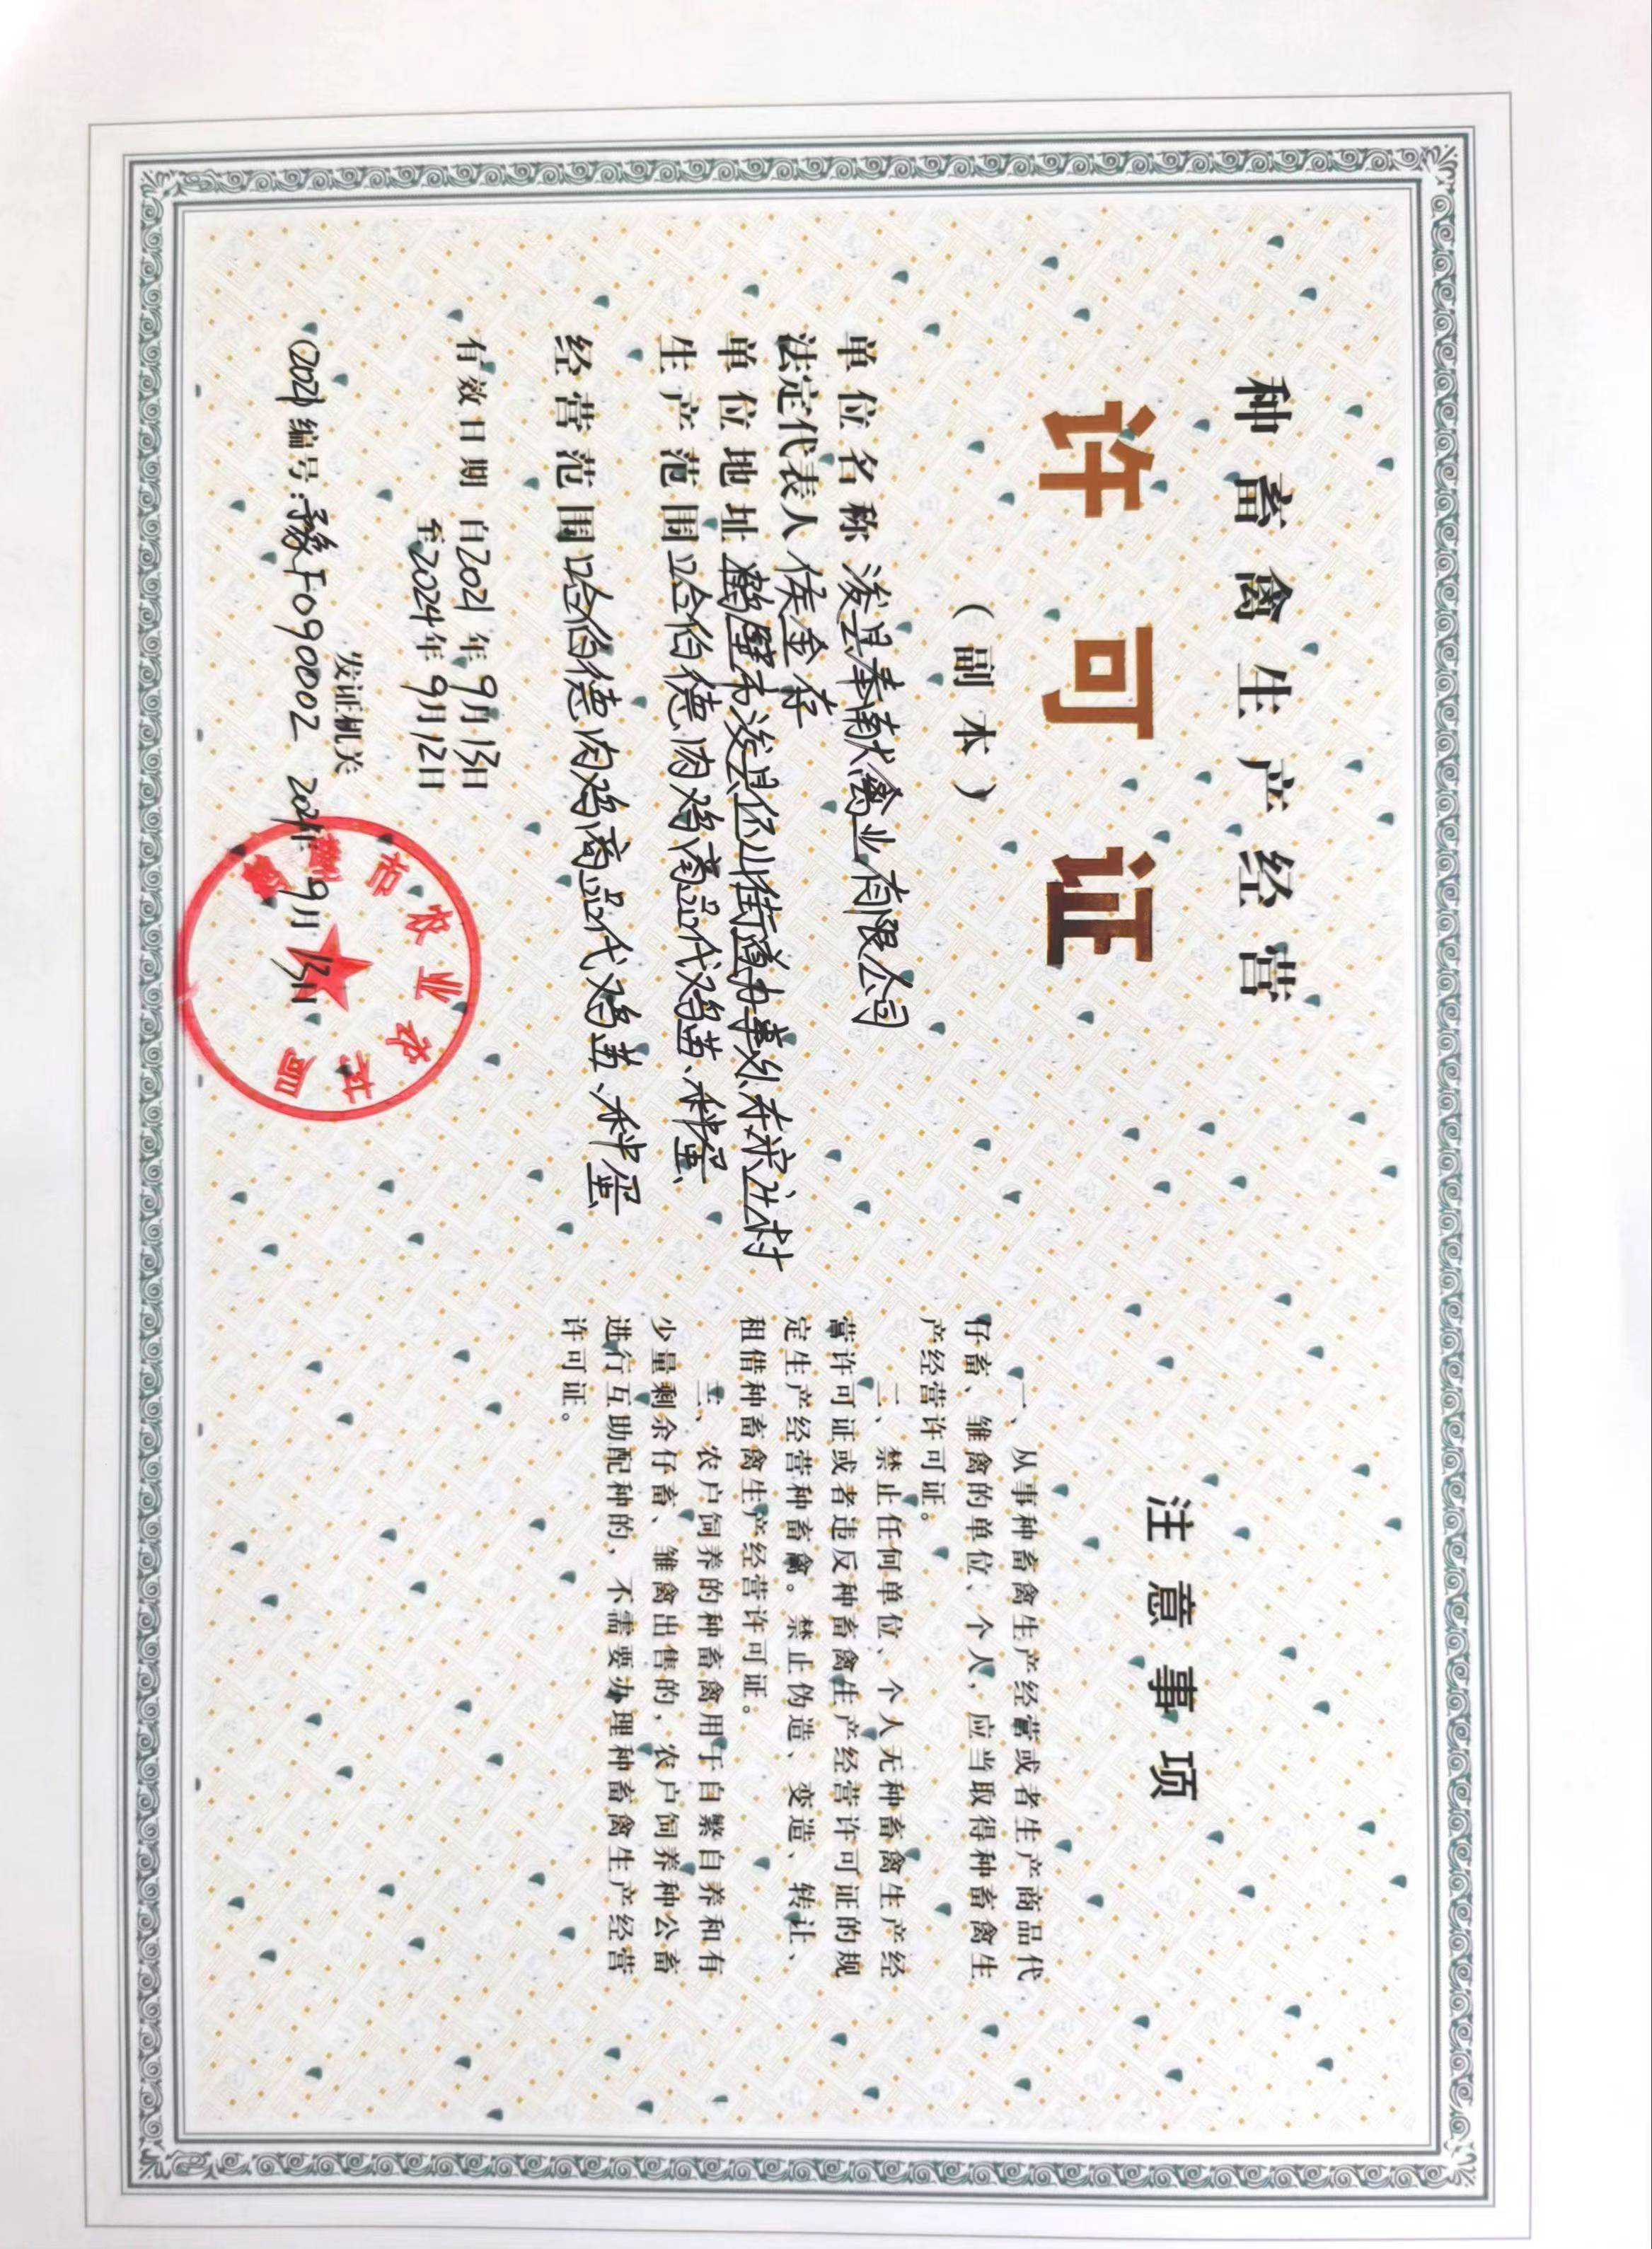 种畜禽生产经营
许可证
（副本）
单位名称 浚县奉献禽业有限公司
法定代表人 侯金存
单位地址 鹤壁市浚县伾山街道办事处东宋庄村
生产范围 哈伯德肉鸡商品代鸡苗、种蛋、
经营范围 哈伯德肉鸡商品代鸡苗、种蛋
有效日期 自2021年9月13日
至2024年9月12日
发证机关
(2021)编号:豫F090002 2021年9月13日
鹤壁市农业农村局
注意事项
一、从事种畜禽生产经营或者生产商品代
仔畜、雏禽的单位、个人，应当取得种畜禽生
产经营许可证。
二、禁止任何单位、个人无种畜禽生产经
营许可证或者违反种畜禽生产经营许可证的规
定生产经营种畜禽。禁止伪造、变造、转让、
租借种畜禽生产经营许可证。
三、农户饲养的种畜禽用于自繁自养和有
少量剩余仔畜、雏禽出售的，农户饲养种公畜
进行互助配种的，不需要办理种畜禽生产经营
许可证。